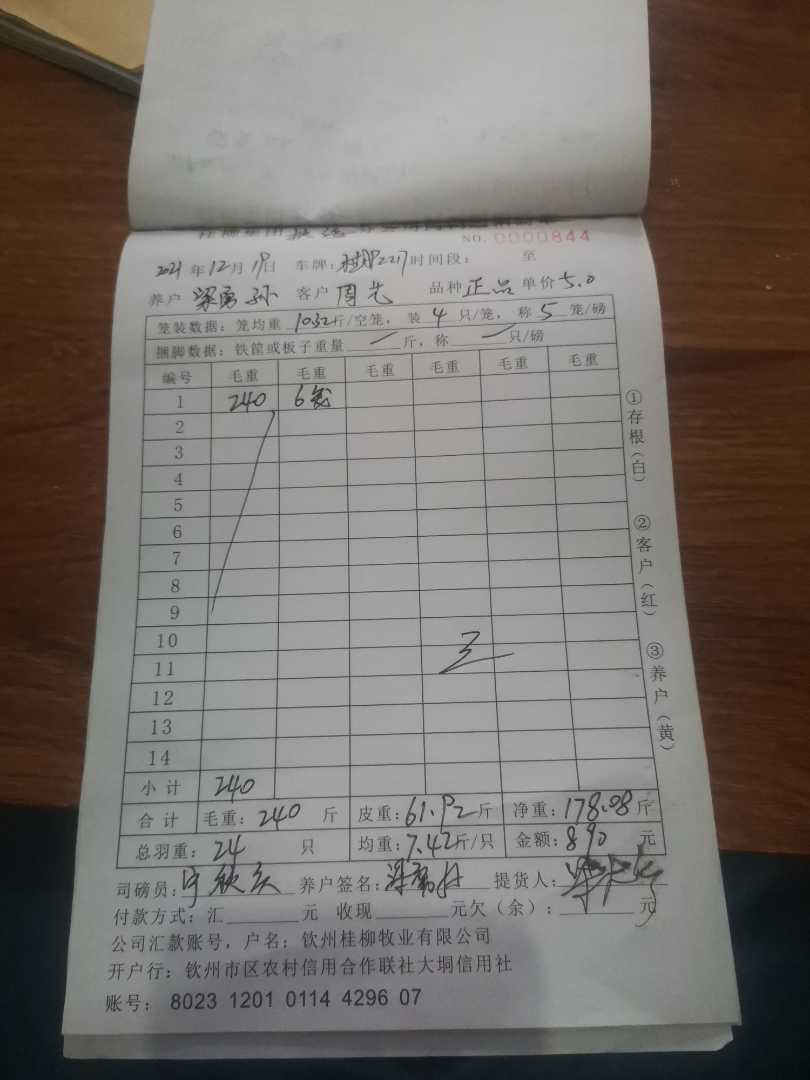 NO. 0000844
2021 年 12 月 19 日 车牌: 2217 时间段: 至
养户 梁勇孙 客户 周艺 品种 正品 单价 5.0
笼装数据: 笼均重 10.32 斤/空笼, 装 4 只/笼, 称 5 笼/磅
捆脚数据: 铁筐或板子重量 — 斤, 称 — 只/磅
编号 毛重 毛重 毛重 毛重 毛重 毛重
1 240 6笼
2
3
4
5
6
7
8
9
10
11
12
13
14
小计 240
合计 毛重: 240 斤 皮重: 61.92 斤 净重: 178.08 斤
总羽重: 24 只 均重: 7.42 斤/只 金额: 890 元
司磅员: 养户签名: 提货人:
付款方式: 汇 元 收现 元欠(余): 元
公司汇款账号, 户名: 钦州桂柳牧业有限公司
开户行: 钦州市区农村信用合作联社大垌信用社
账号: 8023 1201 0114 4296 07
①存根(白)
②客户(红)
③养户(黄)